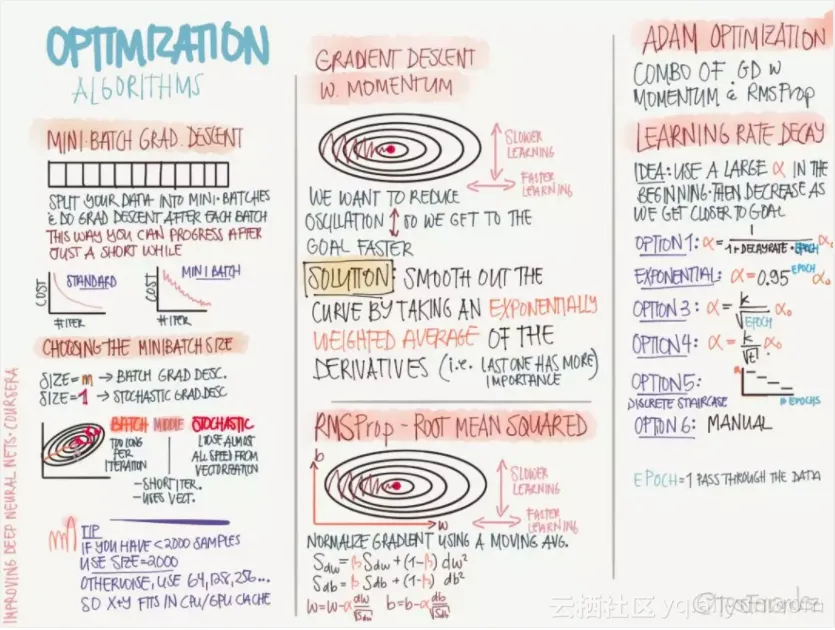 OPTIMIZATION
ALGORITHMS
MINI-BATCH GRAD. DESCENT
SPLIT YOUR DATA INTO MINI-BATCHES
& DO GRAD DESCENT AFTER EACH BATCH
THIS WAY YOU CAN PROGRESS AFTER
JUST A SHORT WHILE
COST
STANDARD
#ITER
COST
MINI BATCH
#ITER
CHOOSING THE MINIBATCH SIZE
SIZE=m → BATCH GRAD DESC.
SIZE=1 → STOCHASTIC GRAD DESC
BATCH
TOO LONG
PER
ITERATION
MIDDLE
-SHORT ITER.
-USES VECT.
STOCHASTIC
LOOSE ALMOST
ALL SPEED FROM
VECTORIZATION
m
TIP
IF YOU HAVE < 2000 SAMPLES
USE SIZE=2000
OTHERWISE, USE 64, 128, 256...
SO X+Y FITS IN CPU/GPU CACHE
IMPROVING DEEP NEURAL NETS · COURSERA
GRADIENT DESCENT
W. MOMENTUM
SLOWER
LEARNING
FASTER
LEARNING
WE WANT TO REDUCE
OSCILLATION ↕ SO WE GET TO THE
GOAL FASTER
SOLUTION: SMOOTH OUT THE
CURVE BY TAKING AN EXPONENTIALLY
WEIGHTED AVERAGE OF THE
DERIVATIVES (i.e. LAST ONE HAS MORE
IMPORTANCE)
RMSProp - ROOT MEAN SQUARED
b
w
SLOWER
LEARNING
FASTER
LEARNING
NORMALIZE GRADIENT USING A MOVING AVG.
Sdw = β Sdw + (1-β) dw²
Sdb = β Sdb + (1-β) db²
w = w - α dw/√Sdw b = b - α db/√Sdb
ADAM OPTIMIZATION
COMBO OF GD W
MOMENTUM & RMSProp
LEARNING RATE DECAY
IDEA: USE A LARGE α IN THE
BEGINNING · THEN DECREASE AS
WE GET CLOSER TO GOAL
OPTION 1: α = 1/(1 + DECAYRATE · EPOCH) α₀
EXPONENTIAL: α = 0.95^EPOCH α₀
OPTION 3: α = k/√EPOCH α₀
OPTION 4: α = k/√t α₀
OPTION 5:
DISCRETE STAIRCASE
α
EPOCHS
OPTION 6: MANUAL
EPOCH = 1 PASS THROUGH THE DATA
@TessFerrandez
云栖社区